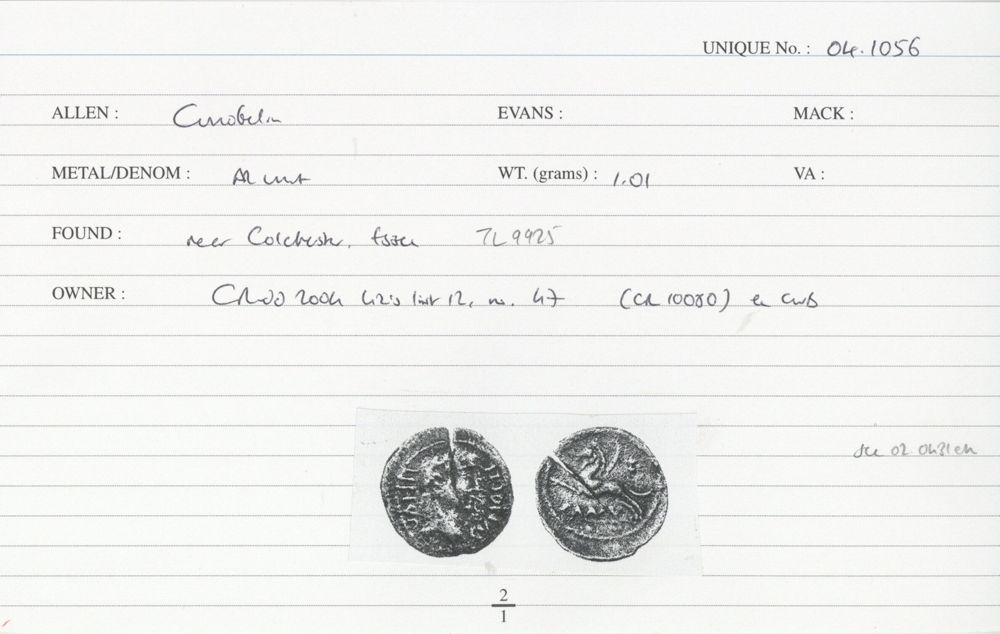 UNIQUE No. : 04.1056
ALLEN : Cunobelin EVANS : MACK :
METAL/DENOM : AR unit WT. (grams) : 1.01 VA :
FOUND : near Colchester, Essex TL9925
OWNER : 2004 list 12, no. 47 (CR 10080) ex CNB
see 02.0431
2
1